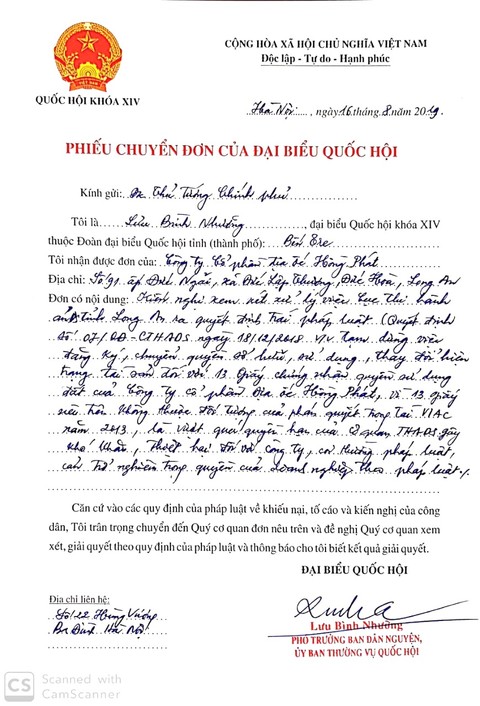 CỘNG HÒA XÃ HỘI CHỦ NGHĨA VIỆT NAM
Độc lập - Tự do - Hạnh phúc
QUỐC HỘI KHÓA XIV
Hà Nội, ngày 16 tháng 8 năm 2019
PHIẾU CHUYỂN ĐƠN CỦA ĐẠI BIỂU QUỐC HỘI
Kính gửi: Thủ tướng Chính phủ
Tôi là Lưu Bình Nhưỡng, đại biểu Quốc hội khóa XIV
thuộc Đoàn đại biểu Quốc hội tỉnh (thành phố): Bến Tre
Tôi nhận được đơn của: Công ty Cổ phần địa ốc Hồng Phát
Địa chỉ: Số 91 ấp Đức Ngãi, xã Đức Lập Thượng, Đức Hòa, Long An
Đơn có nội dung: Kiến nghị xem xét xử lý việc Cục thi hành
án tỉnh Long An ra quyết định trái pháp luật (Quyết định
số 07/QĐ-CTHADS ngày 18/12/2018 v/v tạm dừng việc
đăng ký, chuyển quyền sở hữu, sử dụng, thay đổi hiện
trạng tài sản đối với 13 Giấy chứng nhận quyền sử dụng
đất của Công ty cổ phần địa ốc Hồng Phát, vì 13 giấy
nêu trên không thuộc đối tượng của phán quyết trọng tài VIAC
năm 2013, là vượt quá quyền hạn của cơ quan THADS gây
khó khăn, thiệt hại đối với công ty, coi thường pháp luật,
cản trở nghiêm trọng quyền của doanh nghiệp theo pháp luật./.
Căn cứ vào các quy định của pháp luật về khiếu nại, tố cáo và kiến nghị của công
dân, Tôi trân trọng chuyển đến Quý cơ quan đơn nêu trên và đề nghị Quý cơ quan xem
xét, giải quyết theo quy định của pháp luật và thông báo cho tôi biết kết quả giải quyết.
ĐẠI BIỂU QUỐC HỘI
Địa chỉ liên hệ:
Số 22 Hùng Vương
Ba Đình Hà Nội
Lưu Bình Nhưỡng
PHÓ TRƯỞNG BAN DÂN NGUYỆN,
ỦY BAN THƯỜNG VỤ QUỐC HỘI
CS Scanned with
CamScanner